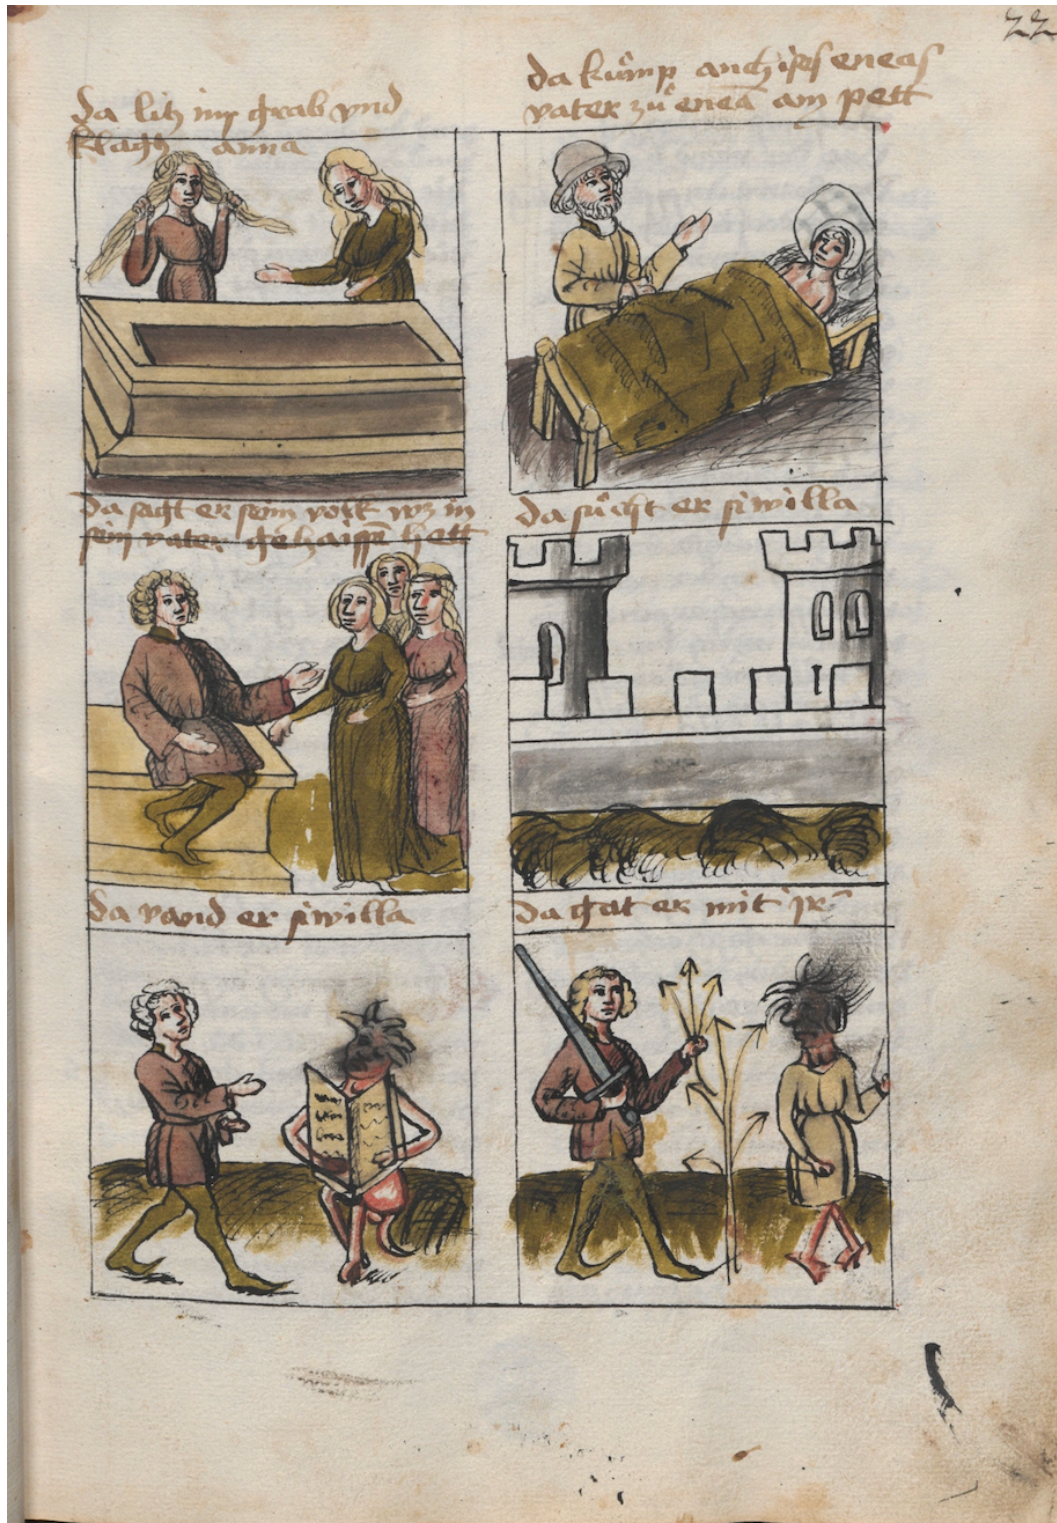 22
da litz im grab vnd
klagt anna
da kůmp anchises eneas
vater zů enea am pett
da sagt er seim volk wz in
sein vater gehaissen hett
da sůcht er siwilla
da vand er siwilla
da gat er mit ir